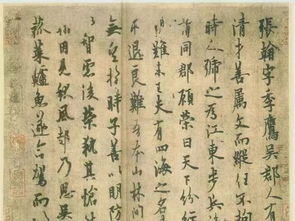 張翰字季鷹吳郡人有
清才善屬文而縱任不拘
時人號之為江東步兵
謂同郡顧榮曰天下紛紜
禍難未已夫有四海之名
退良難吾本山林間
無望於時子善以明防
以智慮後榮執其愴
翰因見秋風起乃思吳
菰菜鱸魚遂命駕而